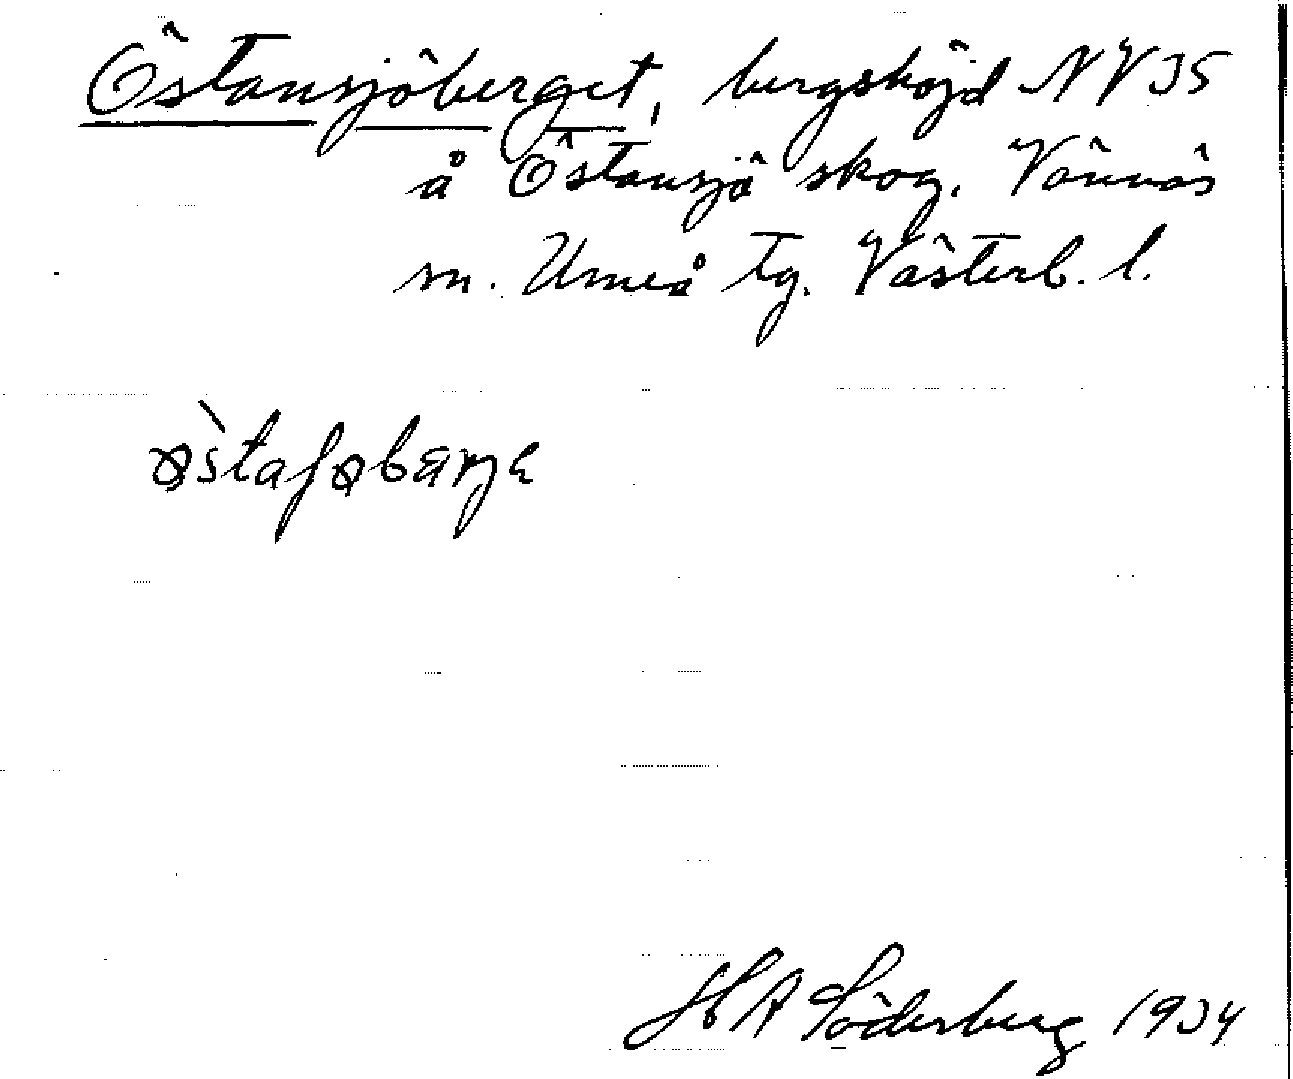 Östansjöberget, bergshöjd NV35
å Östansjö skog. Vännäs
sn. Umeå tg. Västerb. l.
ø̀staʃøbærjɛ
H A Söderberg 1934